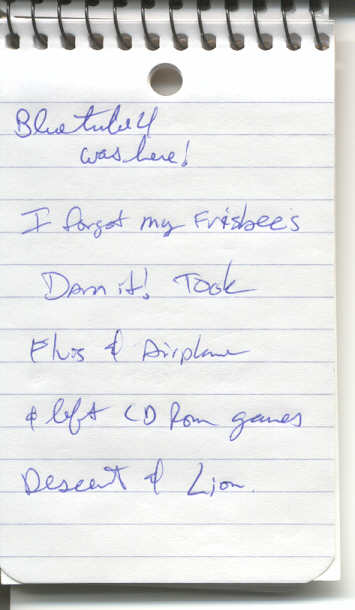 Bluetube4
was here!
I forgot my Frisbee's
Darn it! Took
Elvis & Airplane
& left CD Rom games
Descent & Lion.